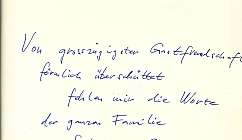 Von grosszügigster Gastfreundschaft
förmlich überschüttet
fehlen mir die Worte
der ganzen Familie